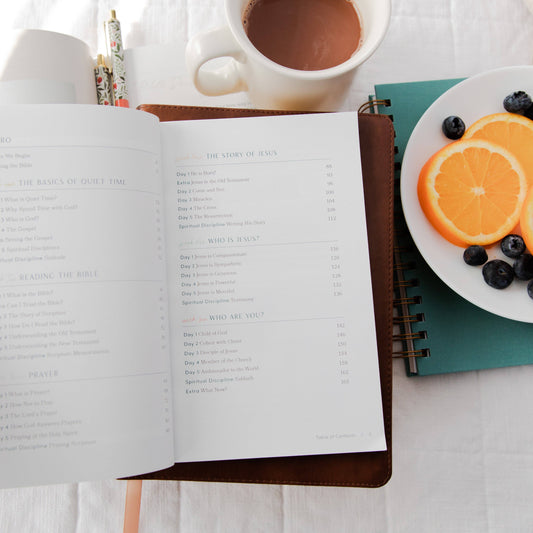 THE BASICS OF QUIET TIME
1 What is Quiet Time?
2 Why Spend Time with God?
3 Who is God?
4 The Gospel
5 Writing the Gospel
Spiritual Discipline Sabbath
READING THE BIBLE
1 What is the Bible?
2 The Story of Scripture
3 How Do I Read the Bible?
4 Understanding the Old Testament
5 Understanding the New Testament
Spiritual Discipline Scripture Memorization
PRAYER
1 What is Prayer?
2 How Not to Pray
3 The Lord's Prayer
4 How God Answers Prayers
5 Praying at the Holy Name
Spiritual Discipline Praying Scripture
THE STORY OF JESUS
Day 1 He is Here! 88
Extra Jesus in the Old Testament
Day 2 Come and See 96
Day 3 Miracles 100
Day 4 The Cross 104
Day 5 The Resurrection
Spiritual Discipline Writing His Story 112
WHO IS JESUS?
Day 1 Jesus is Compassionate 116
Day 2 Jesus is Sympathetic
Day 3 Jesus is Generous 124
Day 4 Jesus is Powerful 128
Day 5 Jesus is Merciful 132
Spiritual Discipline Testimony 136
WHO ARE YOU?
Day 1 Child of God 142
Day 2 Coheir with Christ
Day 3 Disciple of Jesus 150
Day 4 Member of the Church 154
Day 5 Ambassador to the World 158
Spiritual Discipline Sabbath 162
Extra What Now? 165
Table of Contents